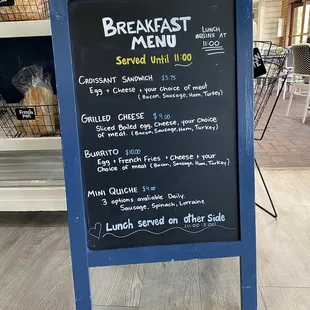 BREAKFAST
MENU
LUNCH
BEGINS AT
11:00
Served Until 11:00
CROISSANT SANDWICH $5.75
Egg + Cheese + your choice of meat
(Bacon, Sausage, Ham, Turkey)
GRILLED CHEESE $9.00
Sliced Boiled egg, Cheese, your Choice
of meat. (Bacon, Sausage, Ham, Turkey)
BURRITO $10.00
Egg + French Fries + Cheese + your
Choice of meat (Bacon, Sausage, Ham, Turkey)
MINI QUICHE $4.00
3 options avaliable Daily.
Sausage, Spinach, Lorraine
Lunch served on other Side
(11:00-5:00)
French